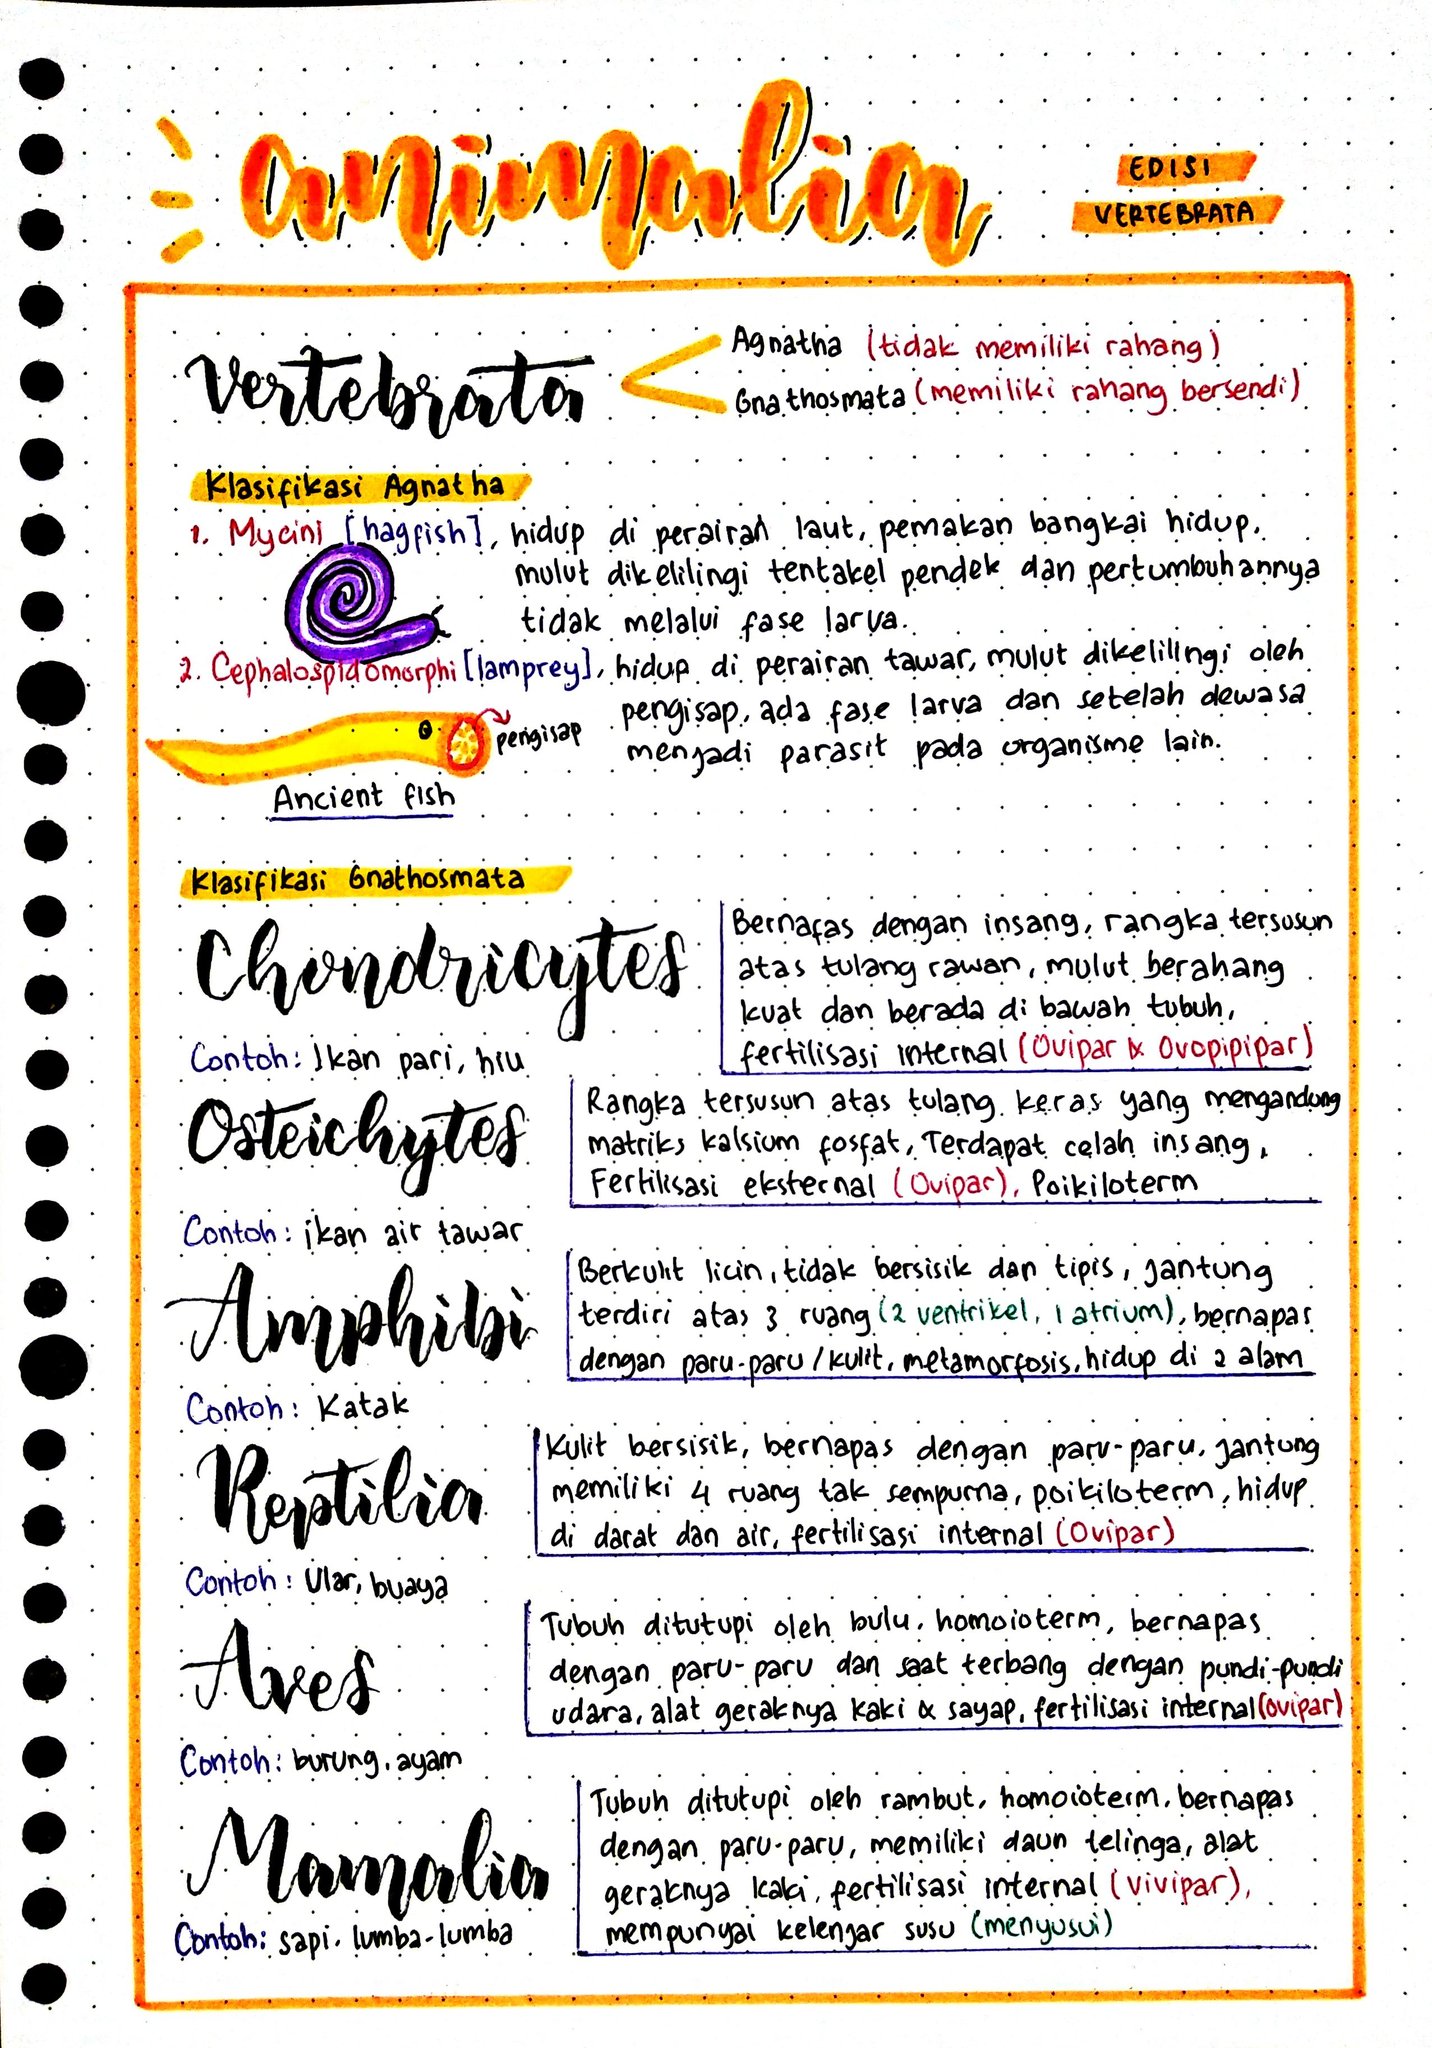 animalia
EDISI
VERTEBRATA
Vertebrata
Agnatha (tidak memiliki rahang)
Gnathosmata (memiliki rahang bersendi)
Klasifikasi Agnatha
1. Mycini [hagfish], hidup di perairan laut, pemakan bangkai hidup,
mulut dikelilingi tentakel pendek dan pertumbuhannya
tidak melalui fase larva.
2. Cephalospidomorphi [lamprey], hidup di perairan tawar, mulut dikelilingi oleh
pengisap, ada fase larva dan setelah dewasa
menjadi parasit pada organisme lain.
pengisap
Ancient fish
Klasifikasi Gnathosmata
Chondricytes
Bernafas dengan insang, rangka tersusun
atas tulang rawan, mulut berahang
kuat dan berada di bawah tubuh,
fertilisasi internal (Ovipar & Ovopipipar)
Contoh: Ikan pari, hiu
Osteichytes
Rangka tersusun atas tulang keras yang mengandung
matriks kalsium fosfat, Terdapat celah insang,
Fertilisasi eksternal (Ovipar), Poikiloterm
Contoh: ikan air tawar
Amphibi
Berkulit licin, tidak bersisik dan tipis, jantung
terdiri atas 3 ruang (2 ventrikel, 1 atrium), bernapas
dengan paru-paru/kulit, metamorfosis, hidup di 2 alam
Contoh: Katak
Reptilia
Kulit bersisik, bernapas dengan paru-paru, jantung
memiliki 4 ruang tak sempurna, poikiloterm, hidup
di darat dan air, fertilisasi internal (Ovipar)
Contoh: Ular, buaya
Aves
Tubuh ditutupi oleh bulu, homoioterm, bernapas
dengan paru-paru dan saat terbang dengan pundi-pundi
udara, alat geraknya kaki & sayap, fertilisasi internal (ovipar)
Contoh: burung, ayam
Mamalia
Tubuh ditutupi oleh rambut, homoioterm, bernapas
dengan paru-paru, memiliki daun telinga, alat
geraknya kaki, fertilisasi internal (vivipar),
mempunyai kelenjar susu (menyusui)
Contoh: sapi, lumba-lumba